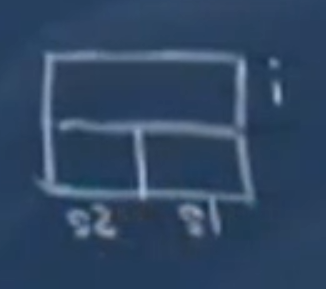 i
S2 S1